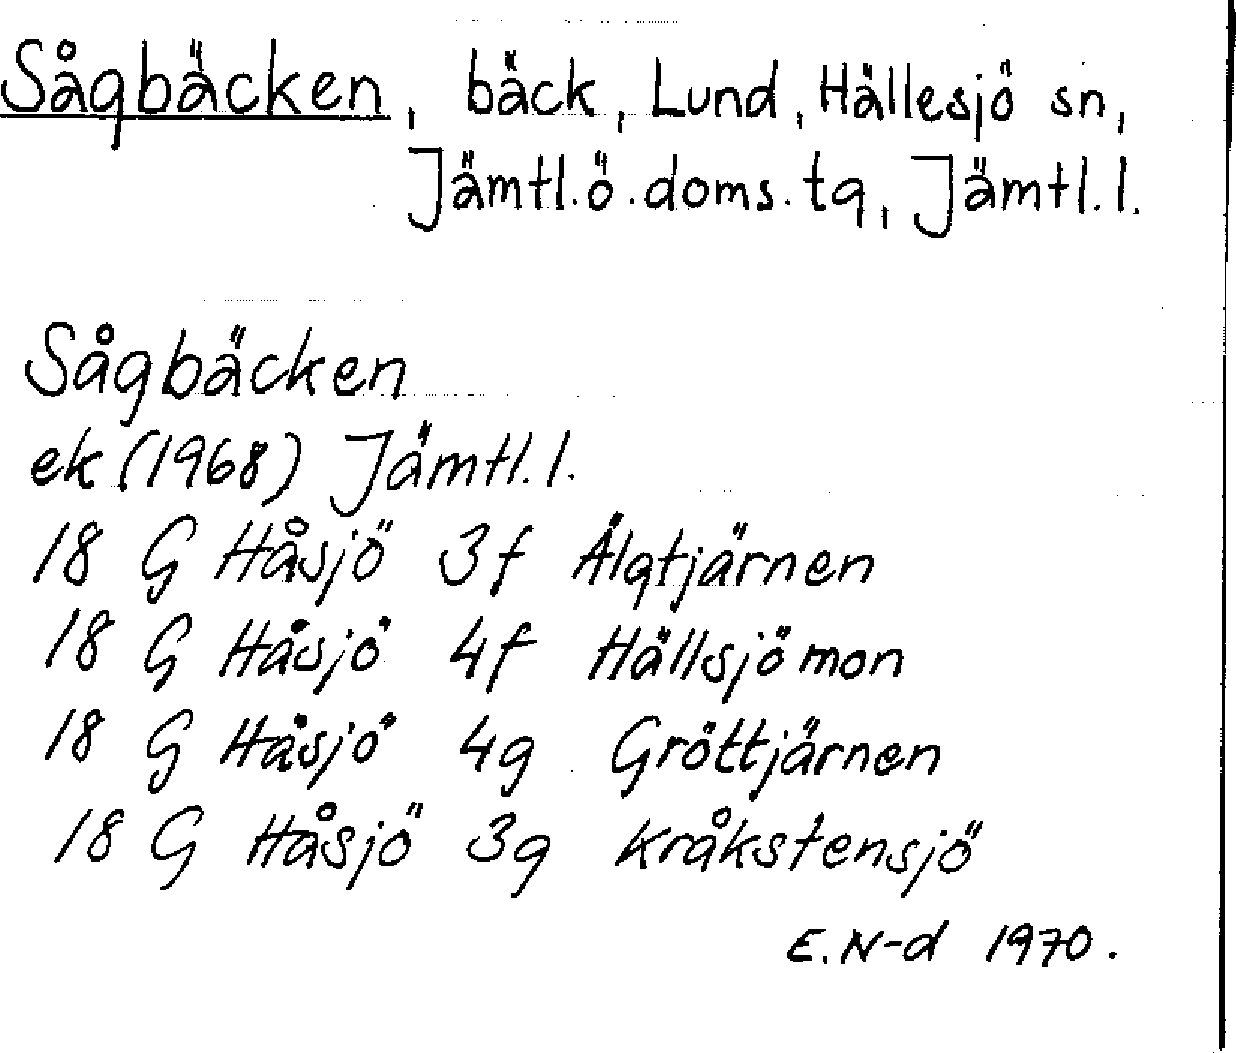 Sågbäcken, bäck, Lund, Hällesjö sn,
Jämtl.ö.doms.tg, Jämtl.l.
Sågbäcken
ek (1968) Jämtl.l.
18 G Håsjö 3f Älgtjärnen
18 G Håsjö 4f Hällsjömon
18 G Håsjö 4g Gröttjärnen
18 G Håsjö 3g Kråkstensjö
E.N-d 1970.